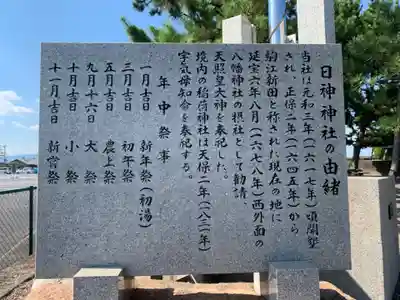 日神神社の由緒
当社は元和三年(一六一七年)頃開墾
され、正保二年(一六四五年)から
駒江新田と称された現在の地に
延宝六年八月(一六七八年)西外面の
八幡神社の摂社として勧請、
天照皇大神を奉祀した。
境内の稲荷神社は天保二年(一八三一年)
宇気母知命を奉祀する。
年中祭事
一月吉日 新年祭(初湯)
三月吉日 初午祭
五月吉日 農上祭
九月十六日 大祭
十月吉日 小祭
十一月吉日 新嘗祭